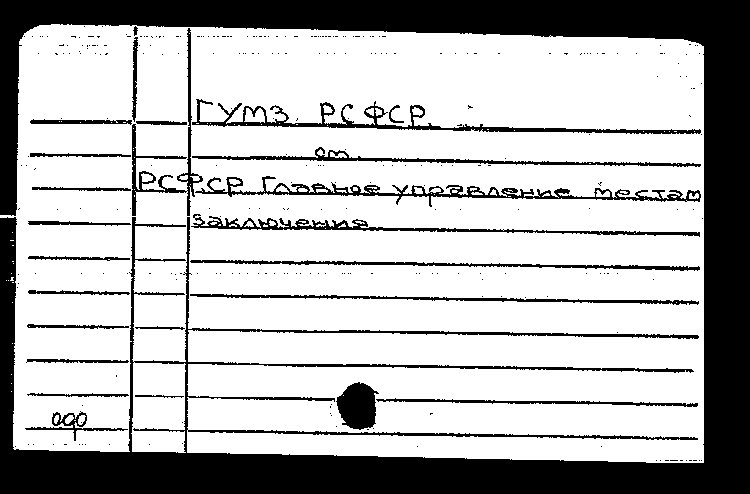 ГУМЗ РСФСР
от.
РСФСР Главное управление местам
заключения